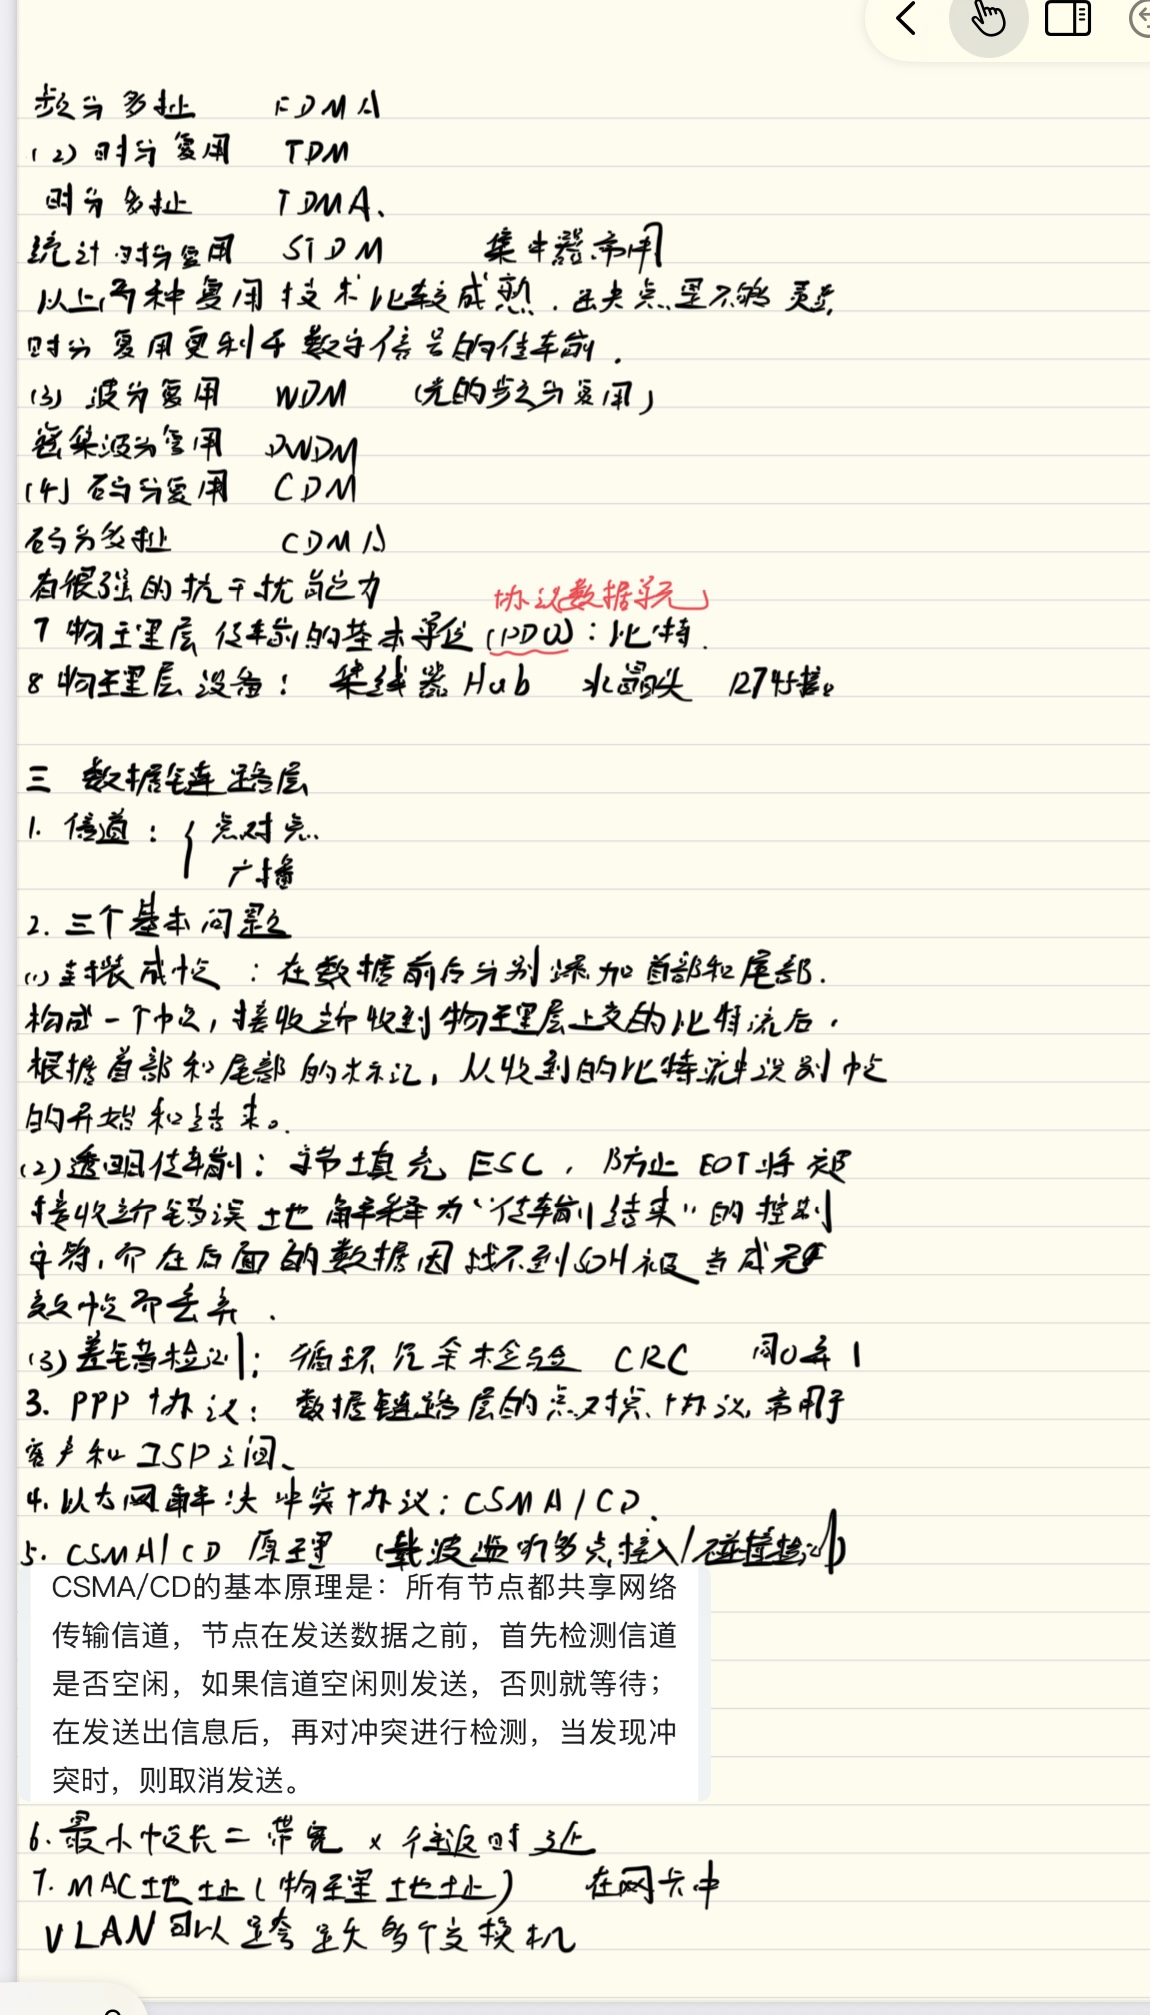 频分多址 FDMA
(2) 时分复用 TDM
时分多址 TDMA、
统计时分复用 STDM 集中器常用
以上两种复用技术比较成熟.但缺点是不够灵活,
时分复用更利于数字信号的传输.
(3) 波分复用 WDM (光的频分复用)
密集波分复用 DWDM
(4) 码分复用 CDM
码分多址 CDMA
有很强的抗干扰能力
协议数据单元
7 物理层传输的基本单位(PDU):比特.
8 物理层设备: 集线器 Hub 水晶头 RJ45接口
三 数据链路层
1. 信道: { 点对点.
广播
2. 三个基本问题
(1) 封装成帧:在数据前后分别添加首部和尾部.
构成一个帧,接收端收到物理层上交的比特流后,
根据首部和尾部的标记,从收到的比特流中识别帧
的开始和结束。
(2)透明传输:字节填充 ESC,防止 EOT将被
接收端错误地解释为“传输结束”的控制
字符,而在后面的数据因找不到SOH被当成无
效帧而丢弃.
(3)差错检测:循环冗余检验 CRC 同0异1
3. PPP协议: 数据链路层的点对点协议,常用于
客户和ISP之间、
4. 以太网解决冲突协议:CSMA/CD.
5. CSMA/CD 原理 (载波监听多点接入/碰撞检测)
CSMA/CD的基本原理是：所有节点都共享网络
传输信道，节点在发送数据之前，首先检测信道
是否空闲，如果信道空闲则发送，否则就等待；
在发送出信息后，再对冲突进行检测，当发现冲
突时，则取消发送。
6. 最小帧长=带宽 × 往返时延
7. MAC地址(物理地址) 在网卡中
VLAN可以跨越多个交换机